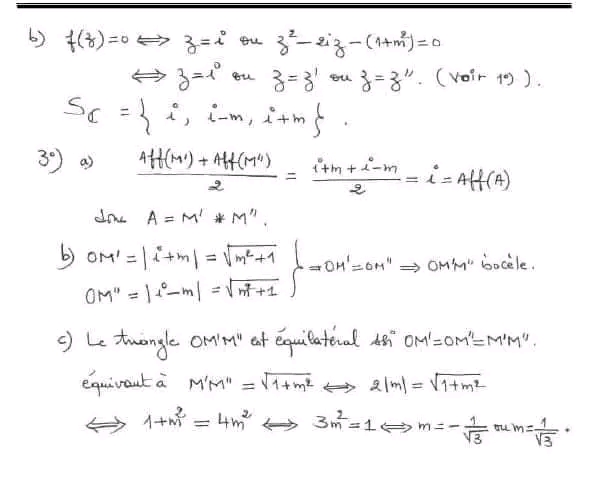 b) f(z)=0 ⟺ z=i ou z²-2iz-(1+m²)=0
⟺ z=i ou z=z' ou z=z". (voir 1°) ).
Sℂ = { i, i-m, i+m } .
3°) a) (Aff(M') + Aff(M"))/2 = (i+m + i-m)/2 = i = Aff(A)
donc A = M' * M".
b) OM' = |i+m| = √(m²+1)
OM" = |i-m| = √(m²+1) } ⇒ OM'=OM" ⇒ OM'M" isocèle.
c) Le triangle OM'M" est équilatéral ssi OM'=OM"=M'M".
équivaut à M'M" = √(1+m²) ⟺ 2|m| = √(1+m²)
⟺ 1+m² = 4m² ⟺ 3m² = 1 ⟺ m = -1/√3 ou m = 1/√3 .